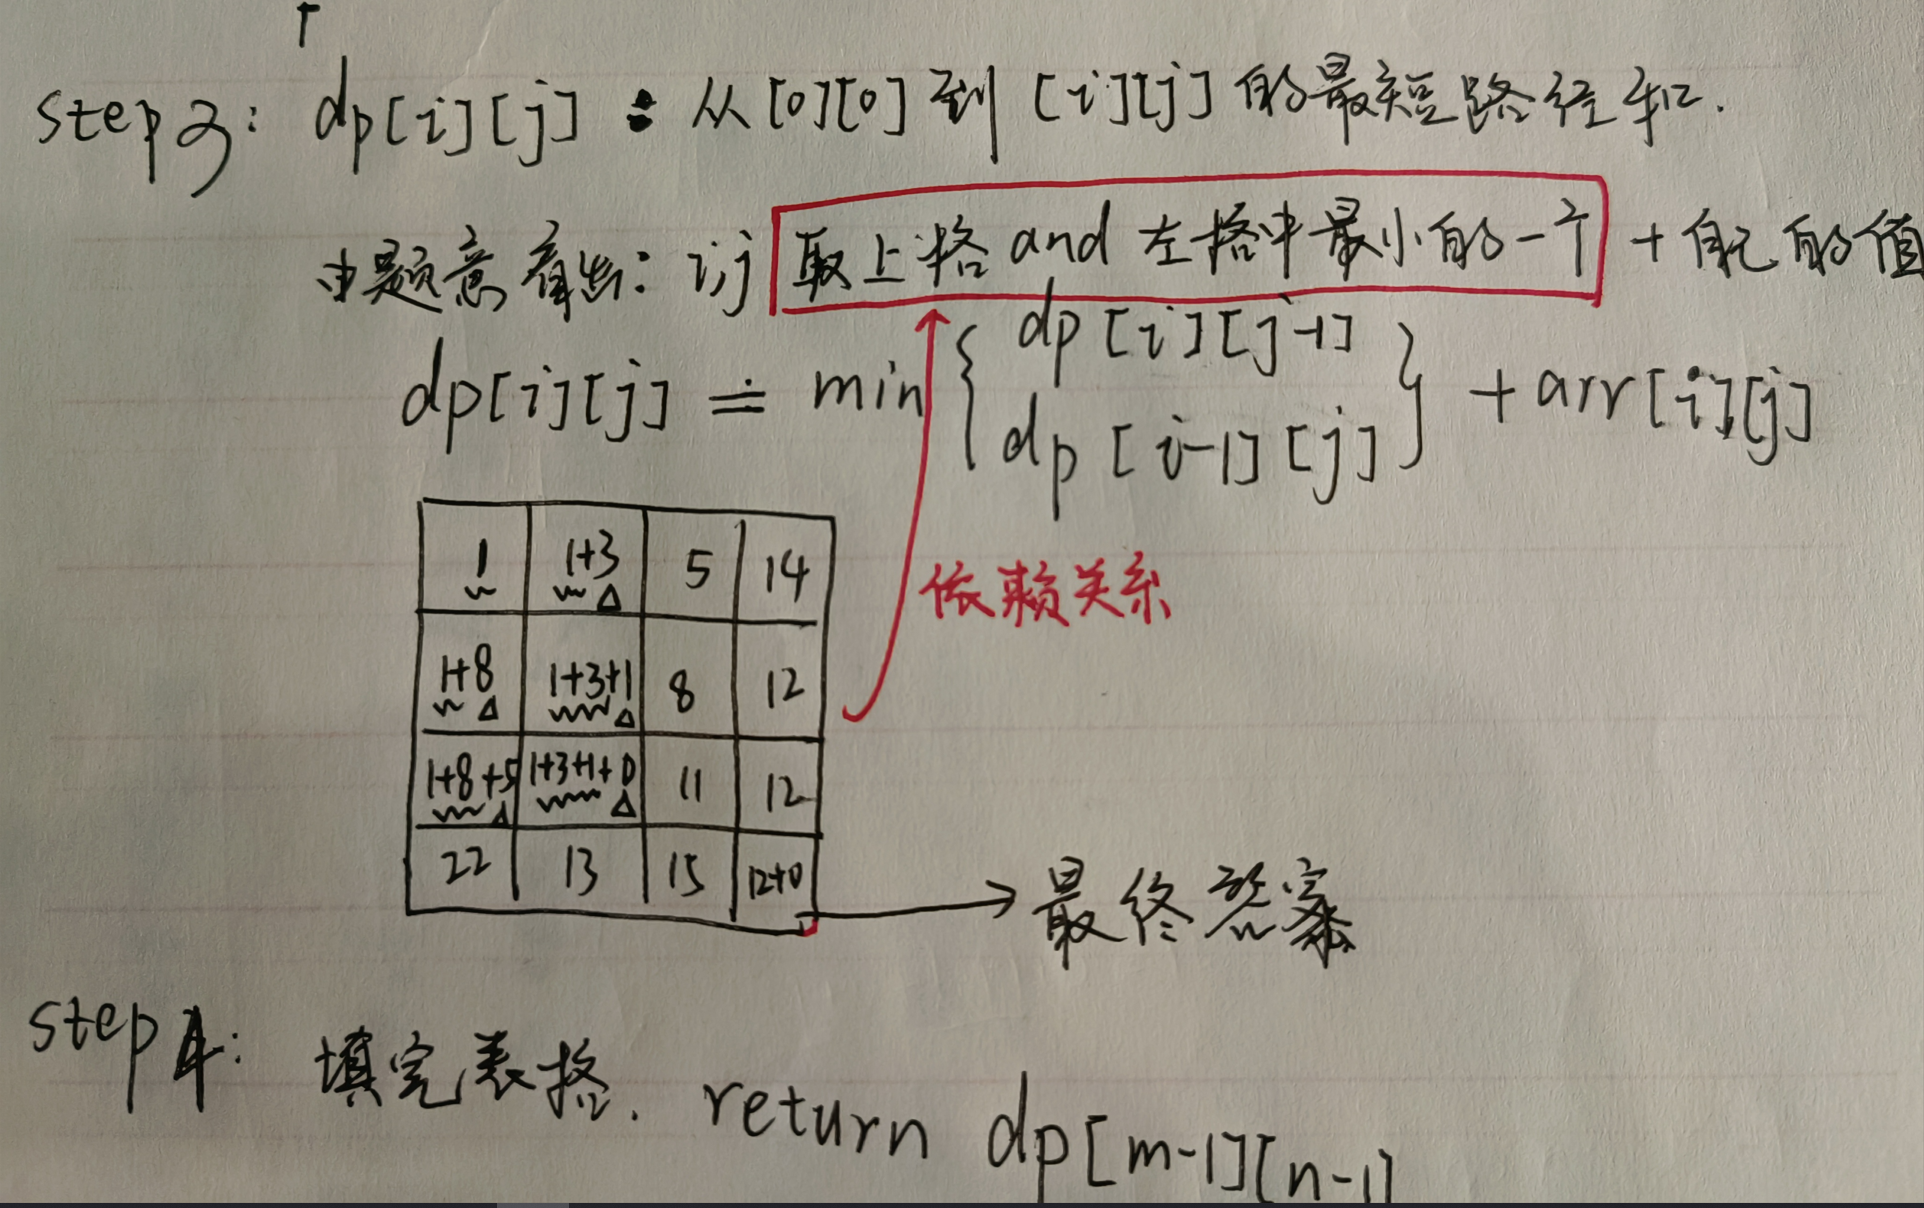 step3: dp[i][j] : 从[0][0]到[i][j]的最短路径和.
由题意看出: i,j 取上格and左格中最小的一个 + 自己的值
dp[i][j] = min { dp[i][j-1]
dp[i-1][j] } + arr[i][j]
1 1+3 5 14
依赖关系
1+8 1+3+1 8 12
1+8+5 1+3+1+0 11 12
22 13 15 12+0
最终答案
step4: 填完表格. return dp[m-1][n-1]